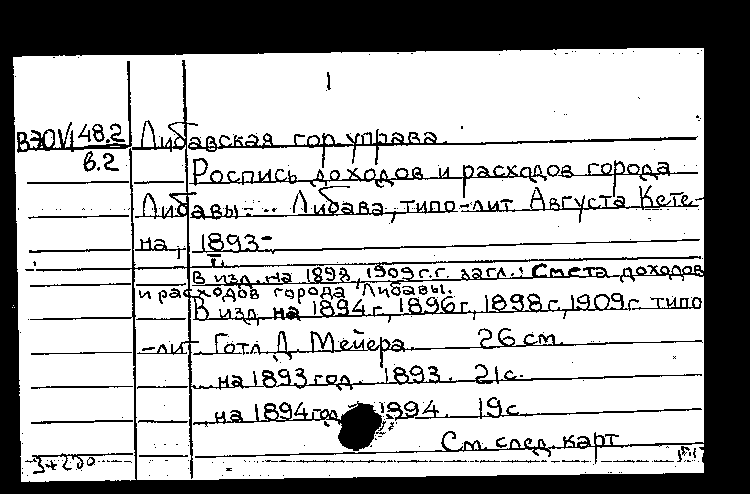 1
ВЭОVI 48.2 Либавская гор. управа.
в.2
Роспись доходов и расходов города
Либавы... Либава, типо-лит. Августа Кете-
на, 1893-
В изд. на 1893, 1909 г.г. загл.: Смета доходов
и расходов города Либавы.
В изд. на 1894 г., 1896 г., 1898 г., 1909 г. типо
-лит. Готл. Д. Мейера. 26 см.
... на 1893 год. 1893. 21 с.
... на 1894 год 1894. 19 с
См. след. карт